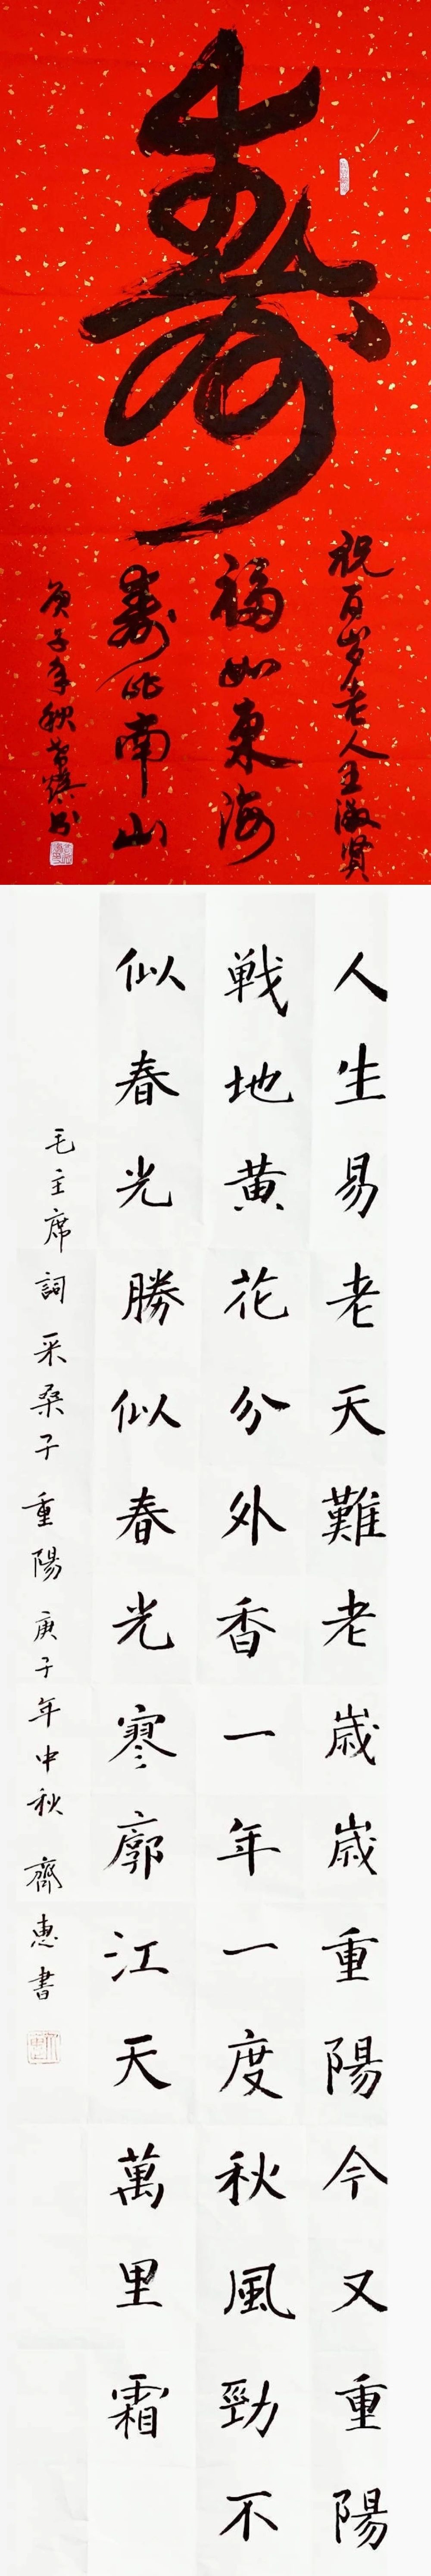 寿
祝百岁老人王淑贤
福如东海
寿比南山
庚子年秋
人生易老天難老歲歲重陽今又重陽
戦地黄花分外香一年一度秋風勁不
似春光勝似春光寥廓江天萬里霜
毛主席詞采桑子重陽庚子年中秋齊惠書